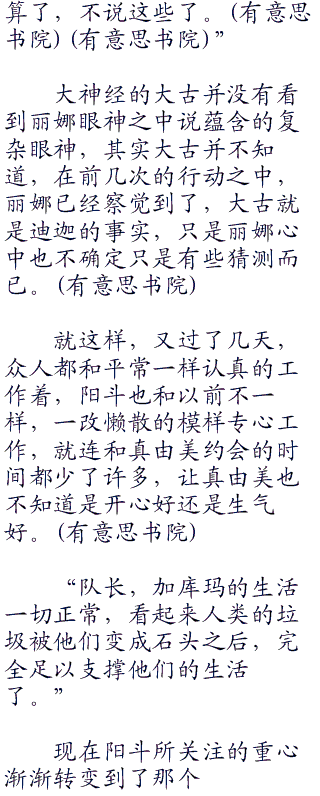 算了，不说这些了。(有意思
书院)(有意思书院)”
大神经的大古并没有看
到丽娜眼神之中说蕴含的复
杂眼神，其实大古并不知
道，在前几次的行动之中，
丽娜已经察觉到了，大古就
是迪迦的事实，只是丽娜心
中也不确定只是有些猜测而
已。(有意思书院)
就这样，又过了几天，
众人都和平常一样认真的工
作着，阳斗也和以前不一
样，一改懒散的模样专心工
作，就连和真由美约会的时
间都少了许多，让真由美也
不知道是开心好还是生气
好。(有意思书院)
“队长，加库玛的生活
一切正常，看起来人类的垃
圾被他们变成石头之后，完
全足以支撑他们的生活
了。”
现在阳斗所关注的重心
渐渐转变到了那个